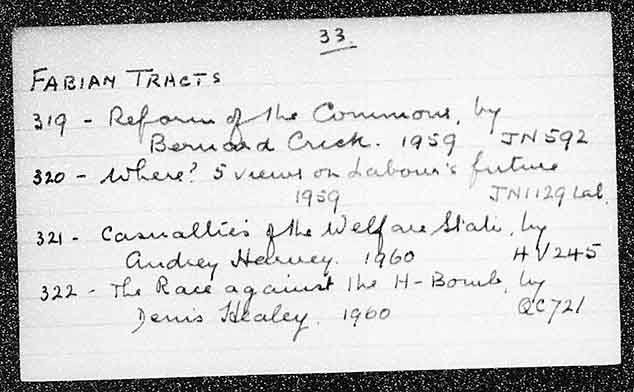 33.
FABIAN TRACTS
319 - Reform of the Commons, by
Bernard Crick. 1959 JN592
320 - Where? 5 views on Labour's future
1959 JN1129 Lab.
321 - Casualties of the Welfare State, by
Audrey Harvey. 1960 HV245
322 - The Race against the H-Bomb, by
Denis Healey. 1960 QC721